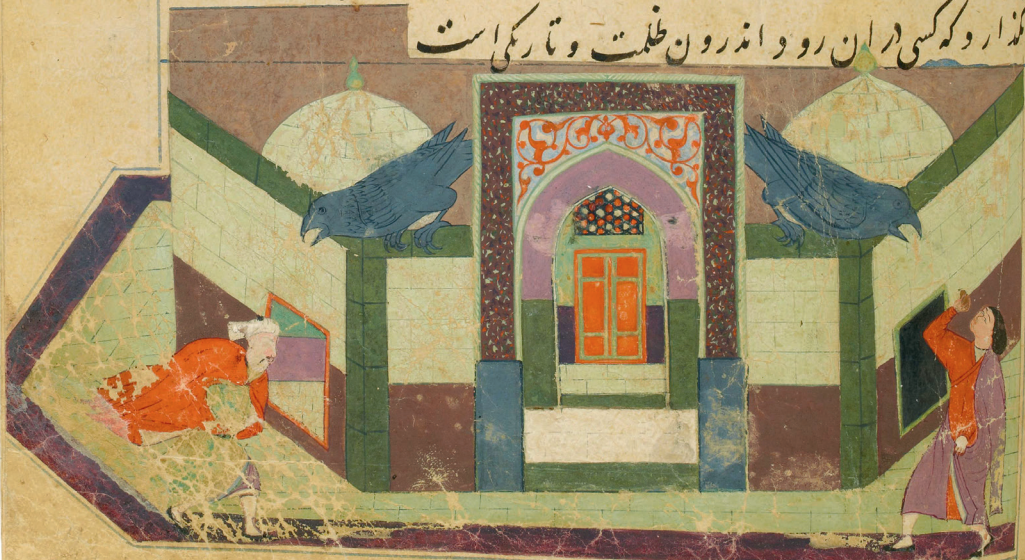 نگذارد که کسی در ان رود و اندرون ظلمت و تاریکی است